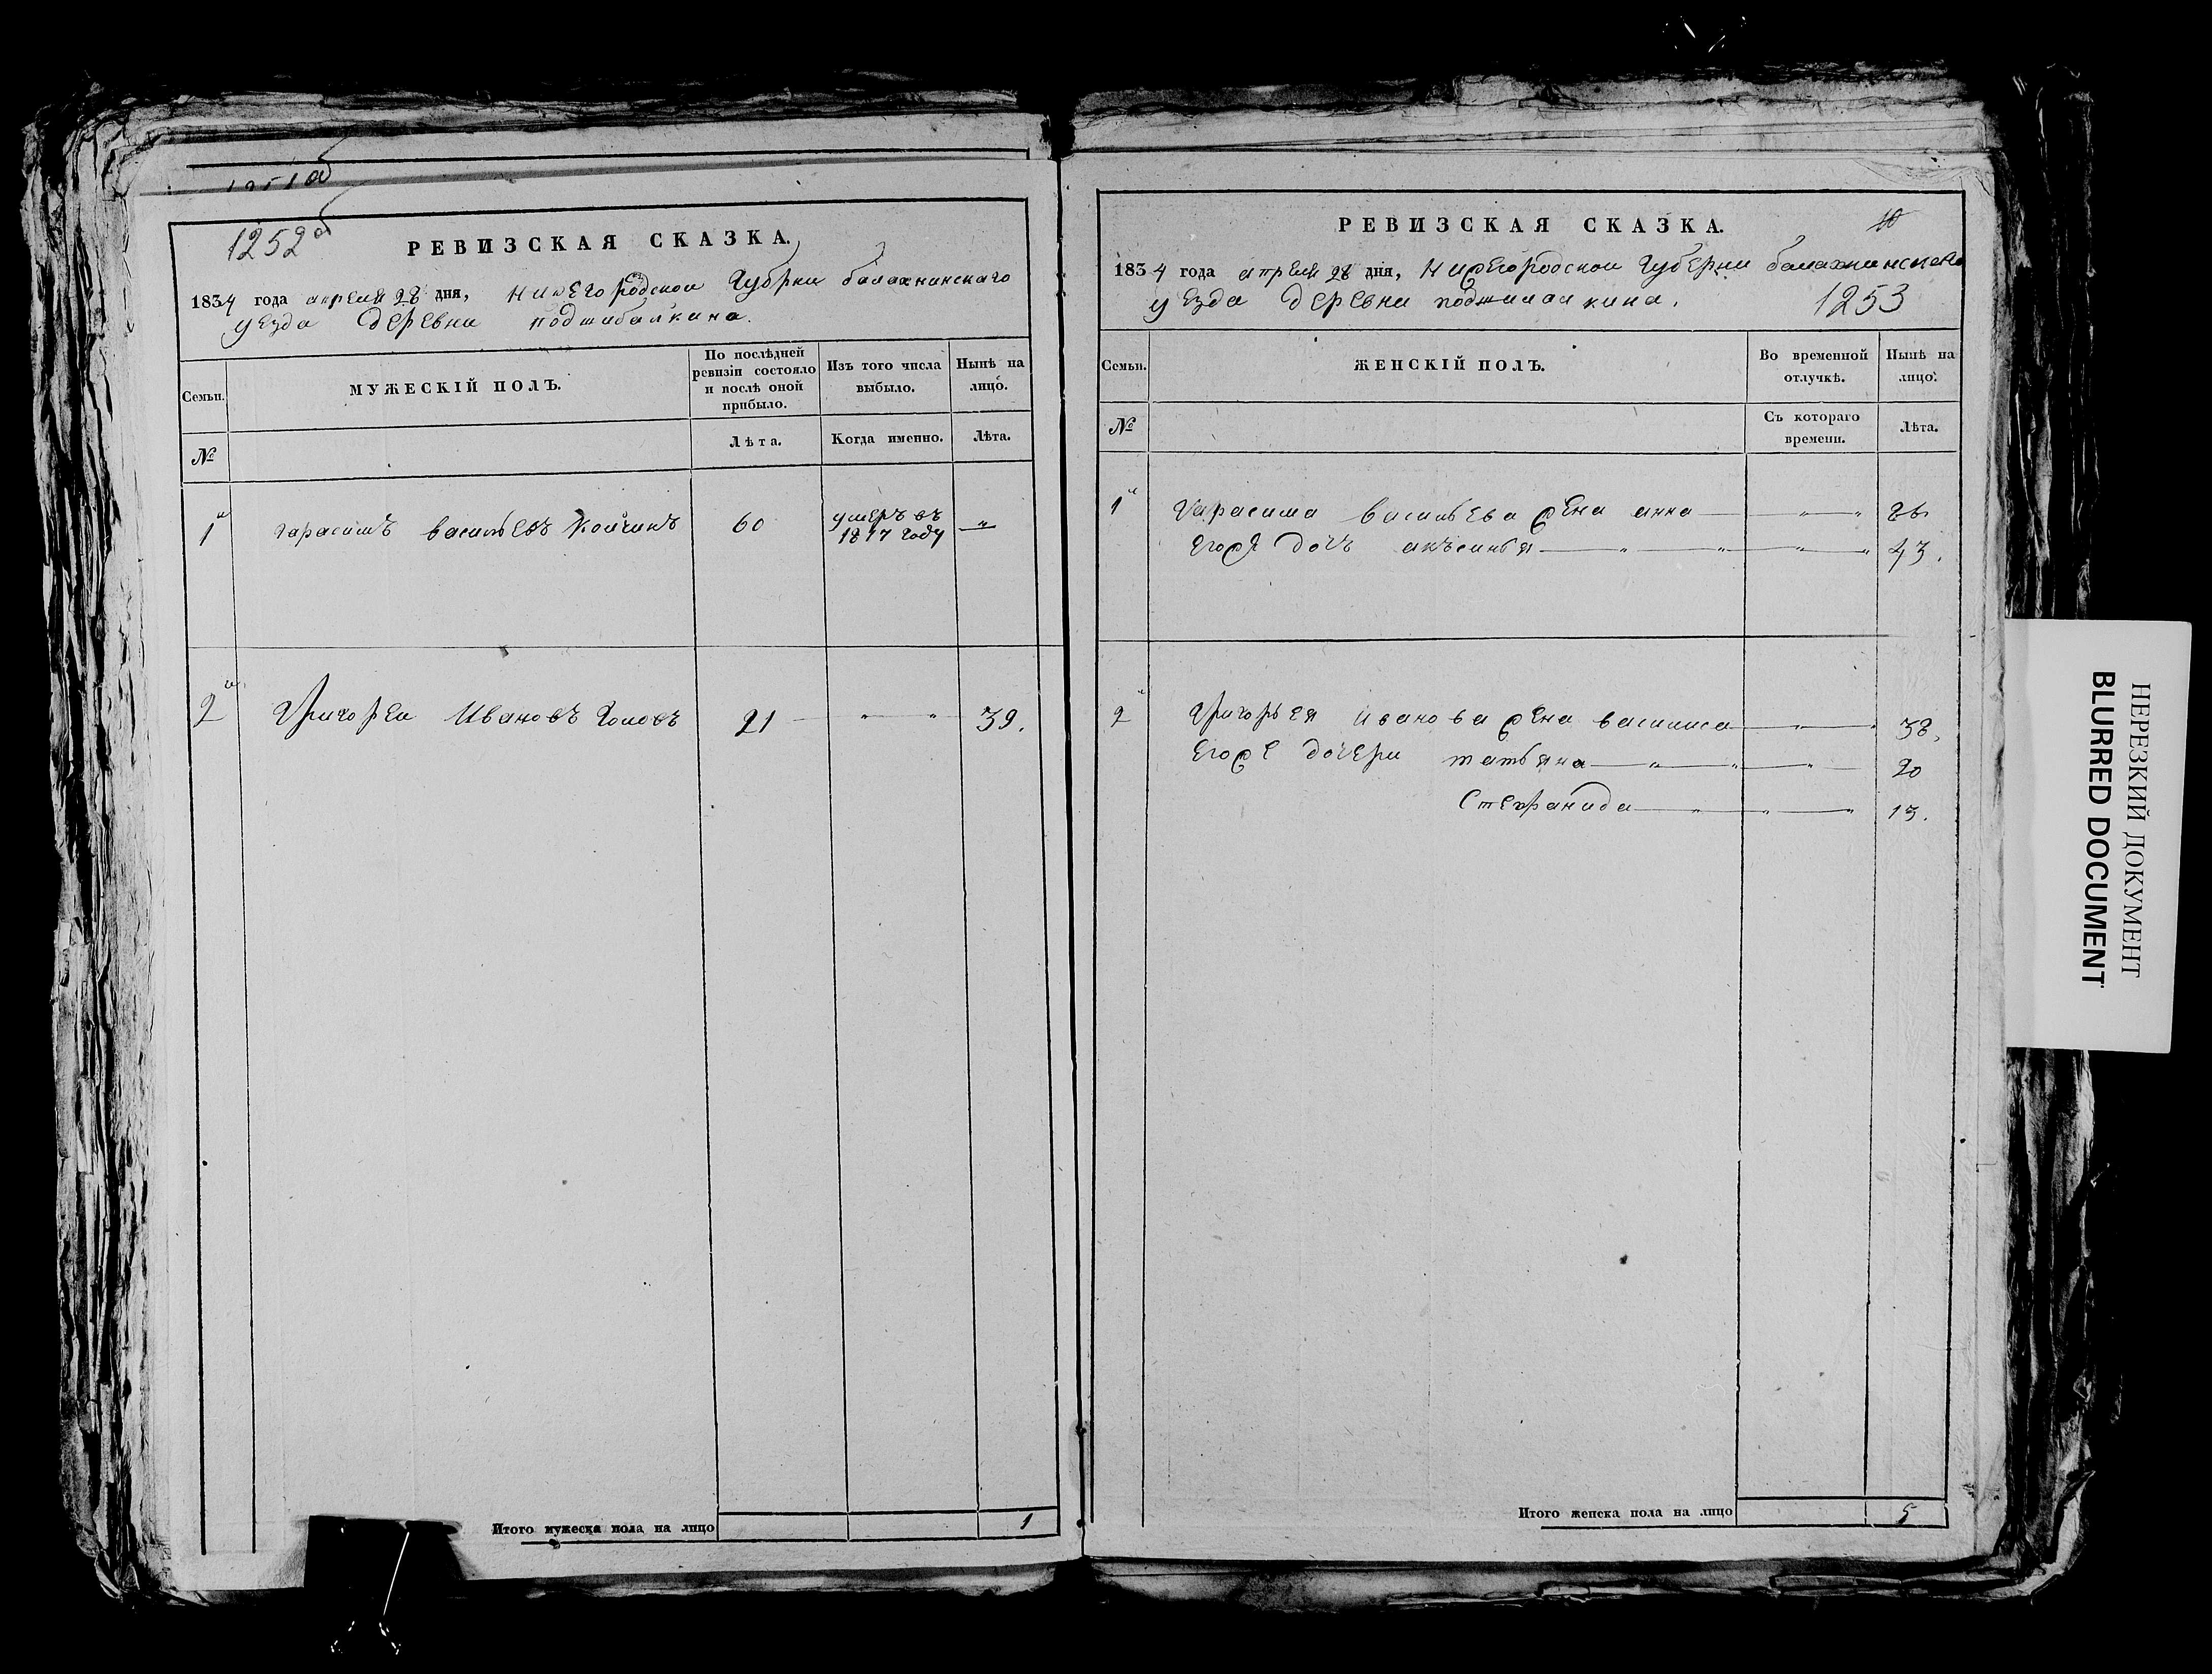 1252об
РЕВИЗСКАЯ СКАЗКА.
1834 года апреля 28 дня, нижегородскои Губрни балахнинскаго
уезда деревни подшибалкина.
Семьи.
МУЖЕСКІЙ ПОЛЪ.
По послѣдней ревизіи состояло и послѣ оной прибыло.
Изъ того числа выбыло.
Нынѣ на лицо.
№
Лѣта.
Когда именно.
Лѣта.
1й гарасимъ васильевъ 60 умеръ въ 1817 году — " —
2й Григореи Ивановъ 21 — " — " — 39.
Итого мужеска пола на лицо 1
РЕВИЗСКАЯ СКАЗКА.
1834 года апреля 28 дня, Нижегородскои Губерни балахнинскаго
уезда деревни
1253
Семьи.
ЖЕНСКІЙ ПОЛЪ.
Во временной отлучкѣ.
Нынѣ на лицо.
№
Съ котораго времени.
Лѣта.
1й Гарасима васильева жена анна — " — "
Егожъ дочъ акъсинья — " — " — " — " 43.
2й Григорья иванова жена василиса — " — " 38.
Егоже дочери татьяна — " — " — " — 20
Стефанида — " — " — " 13.
Итого женска пола на лицо 5
НЕРЕЗКИЙ ДОКУМЕНТ
BLURRED DOCUMENT